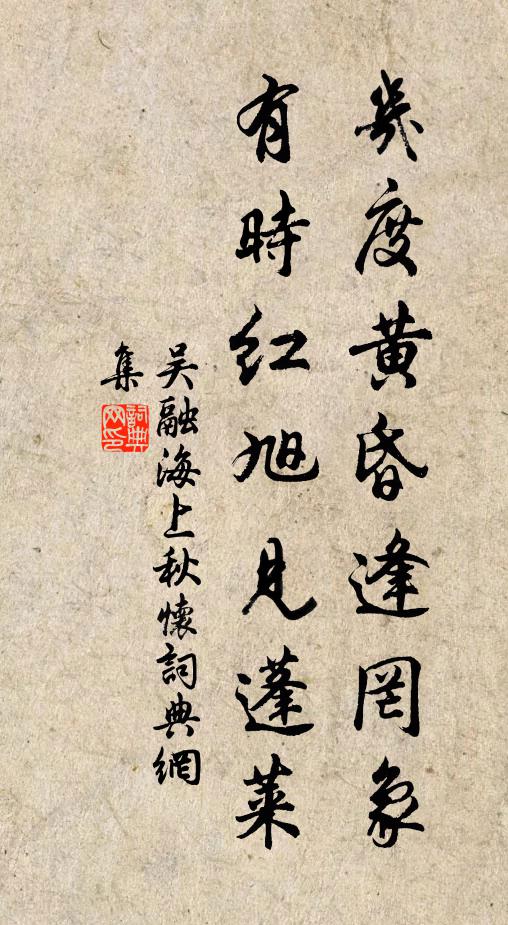 幾度黃昏逢罔象
有時紅旭見蓬萊
吴融海上秋懷詞典網
集
詞典網印